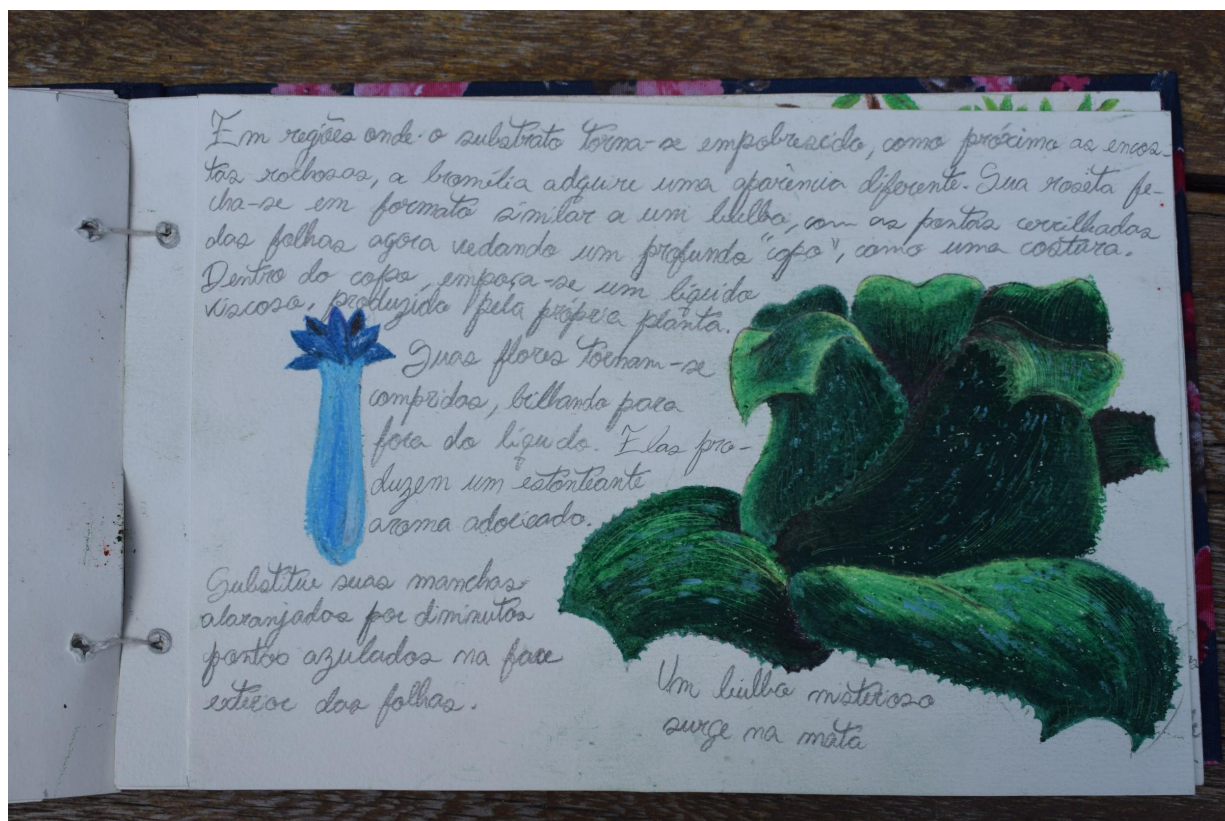 Em regiões onde o substrato torna-se empobrescido, como próximo as encos-
tas rochosas, a bromélia adquire uma aparência diferente. Sua roseta fe-
cha-se em formato similar a um bulbo, com as pontas cerrilhadas
das folhas agora vedando um profundo "copo", como uma costura.
Dentro do copo, empoça-se um líquido
viscoso, produzido pela própria planta.
Suas flores tornam-se
compridas, brilhando para
fora do líquido. Elas pro-
duzem um estonteante
aroma adocicado.
Substitui suas manchas
alaranjadas por diminutos
pontos azulados na face
exterior das folhas.
Um bulbo misterioso
surge na mata